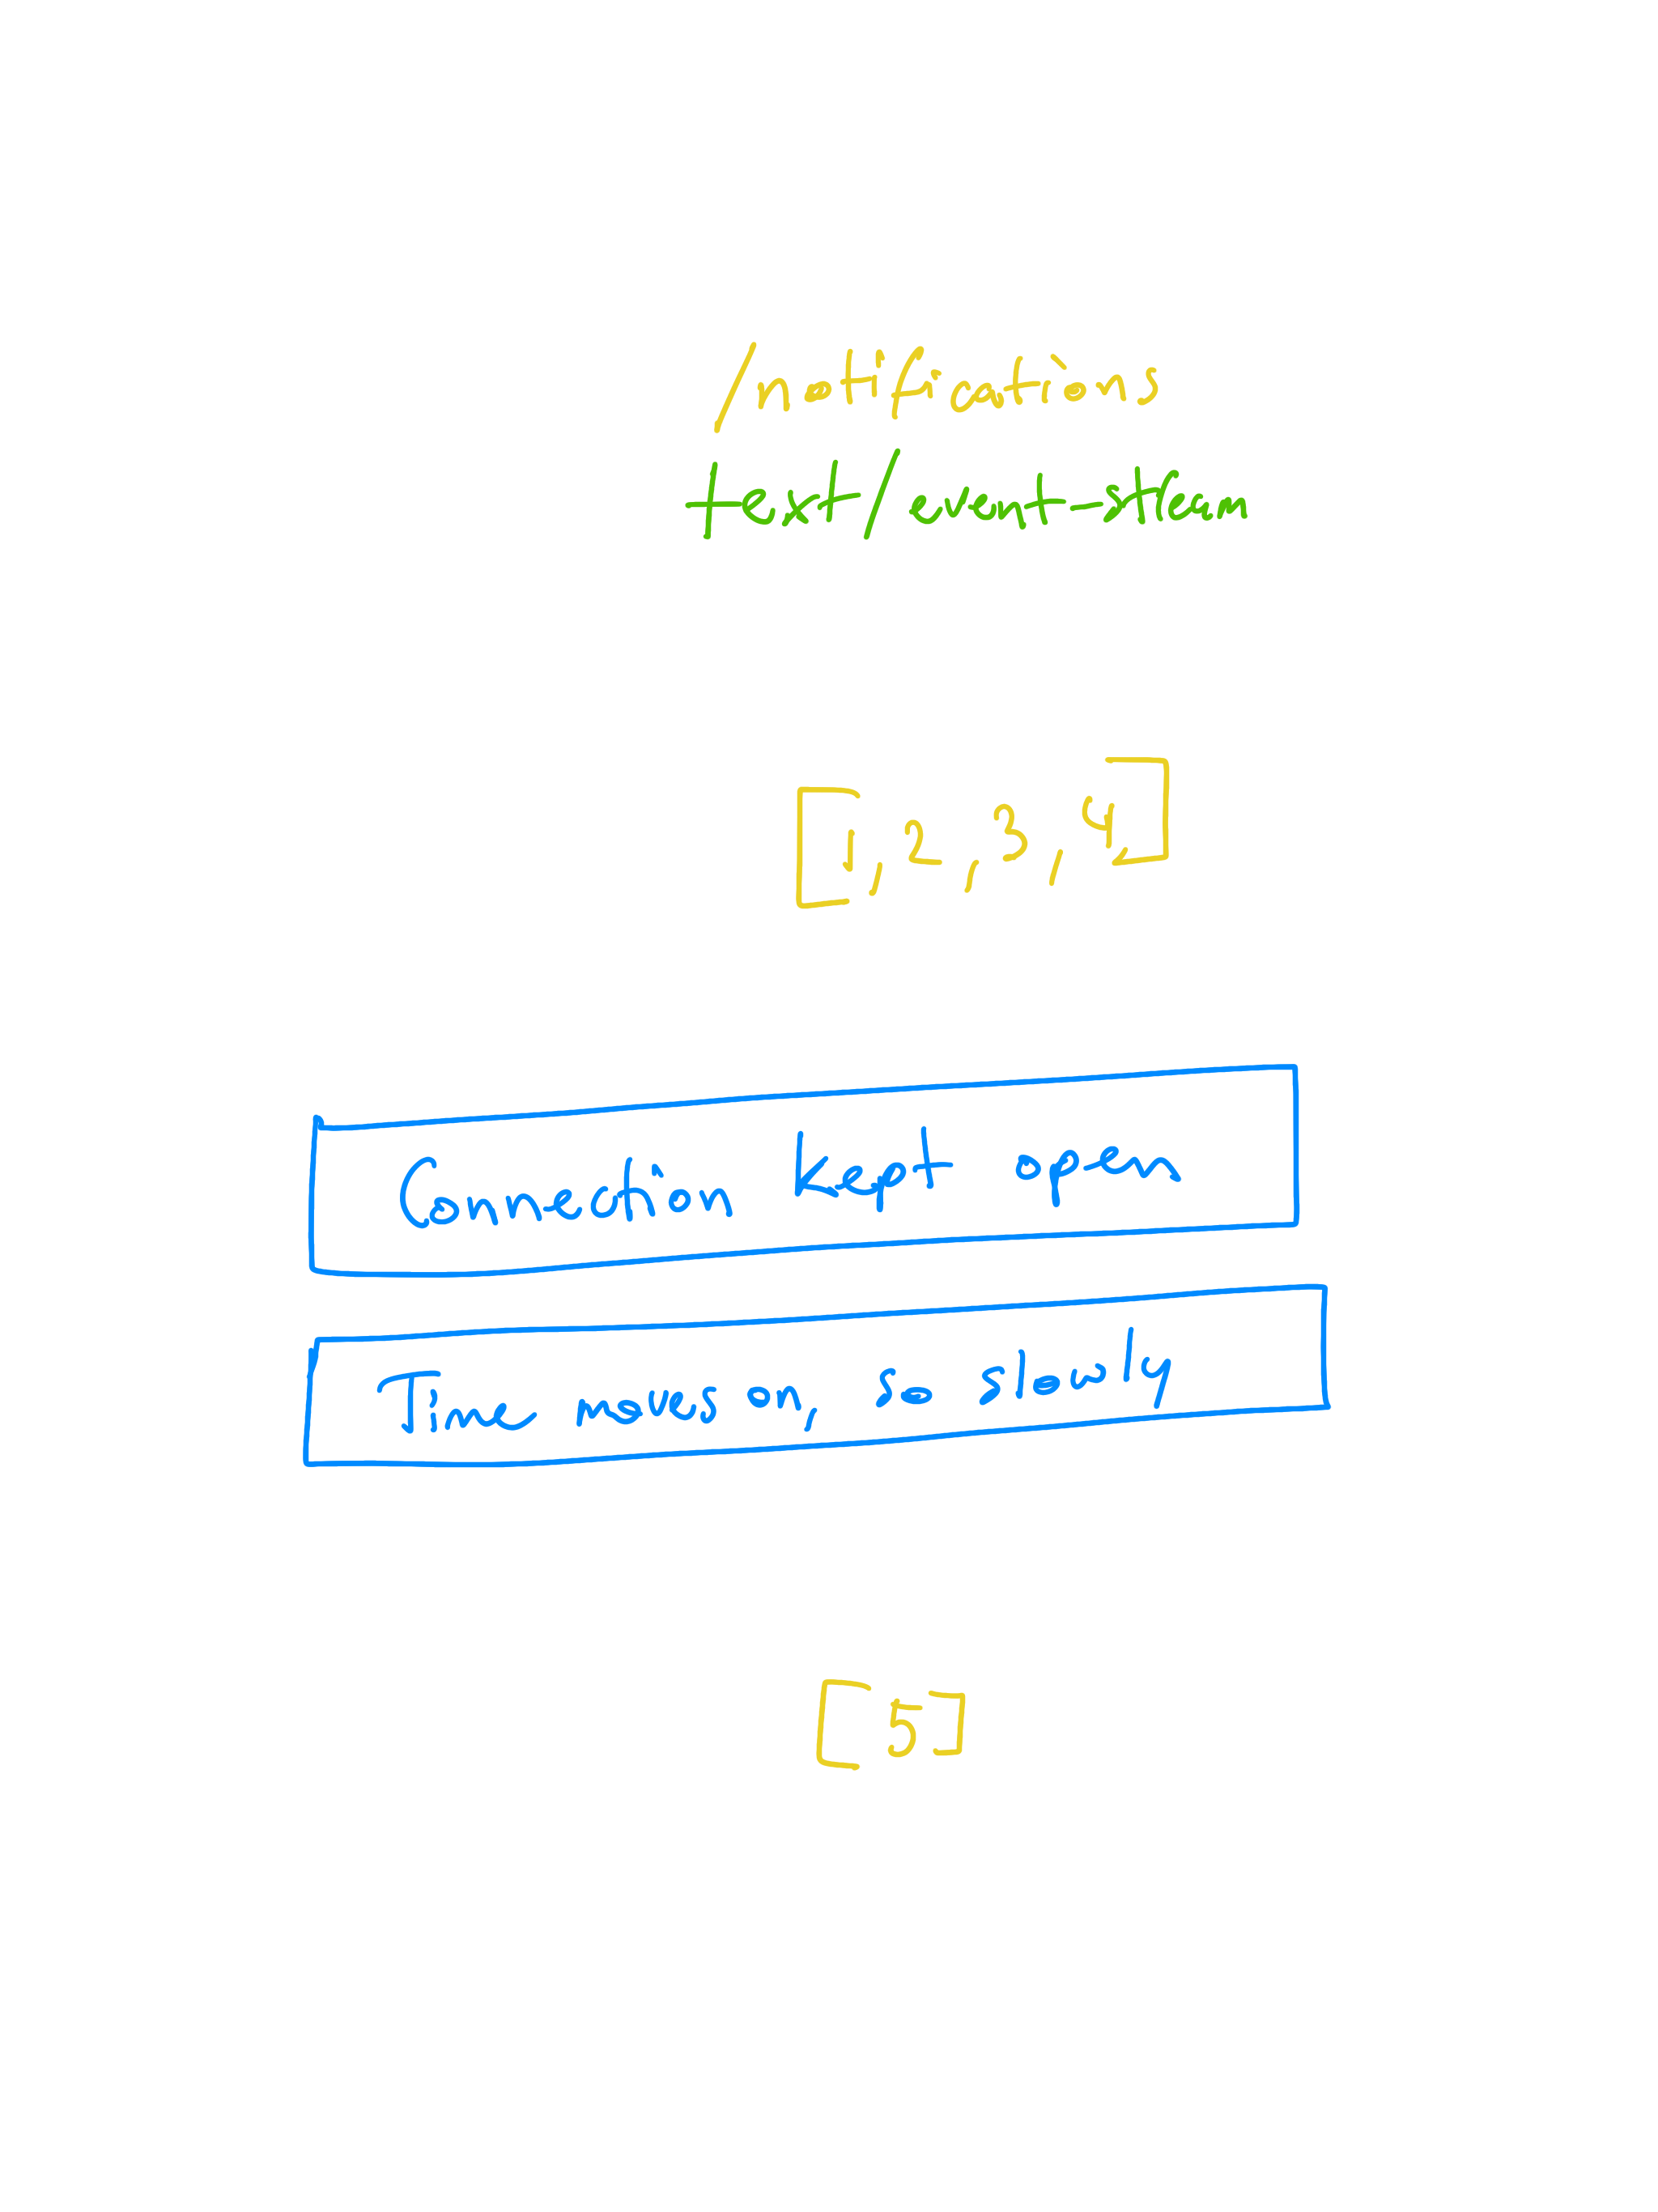 /notifications
text/event-stream
[1, 2, 3, 4]
Connection kept open
Time moves on, so slowly
[5]